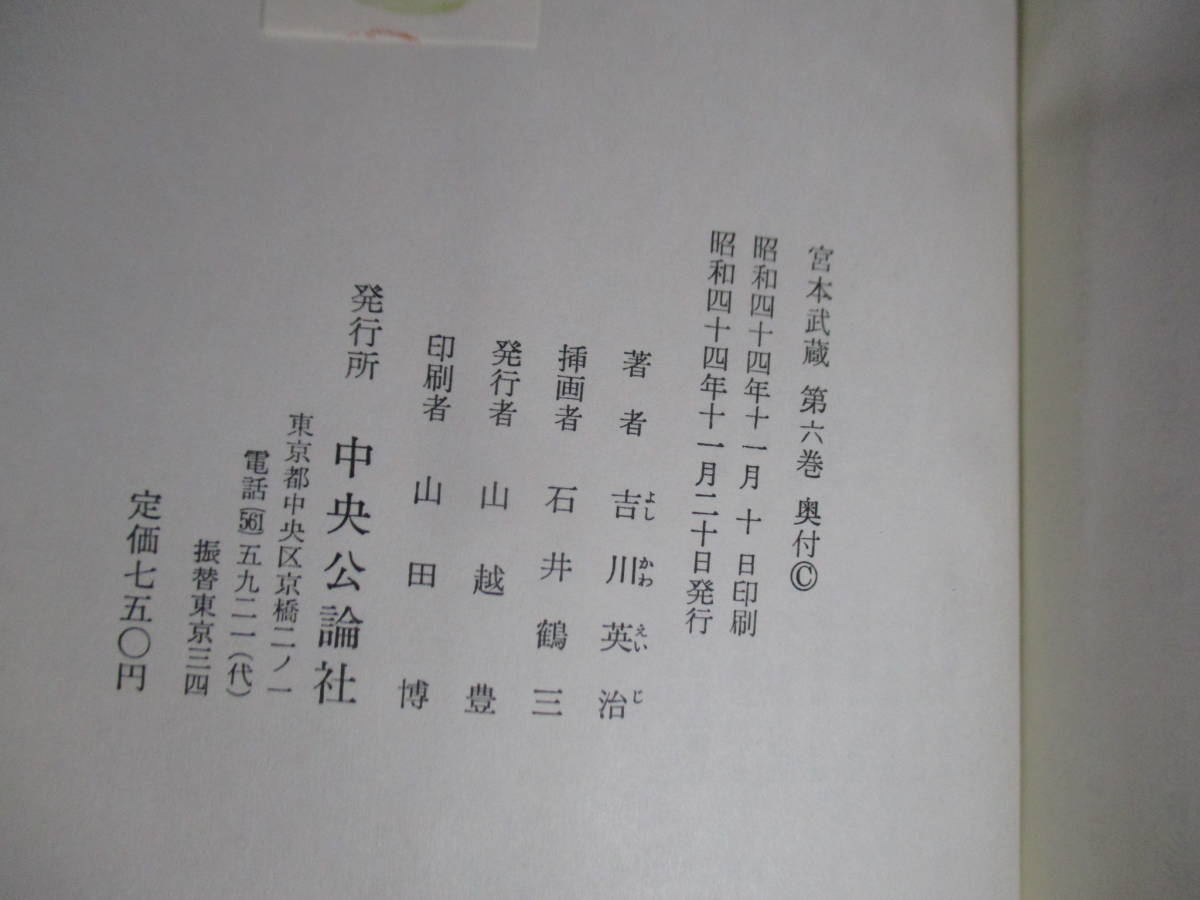 宮本武蔵 第六巻 奥付©
昭和四十四年十一月 十 日印刷
昭和四十四年十一月二十日発行
著者 吉川英治
よし かわ えい じ
挿画者 石井鶴三
発行者 山越豊
印刷者 山田博
発行所 中央公論社
東京都中央区京橋二ノ一
電話(561)五九二一(代)
振替東京三四
定価七五〇円